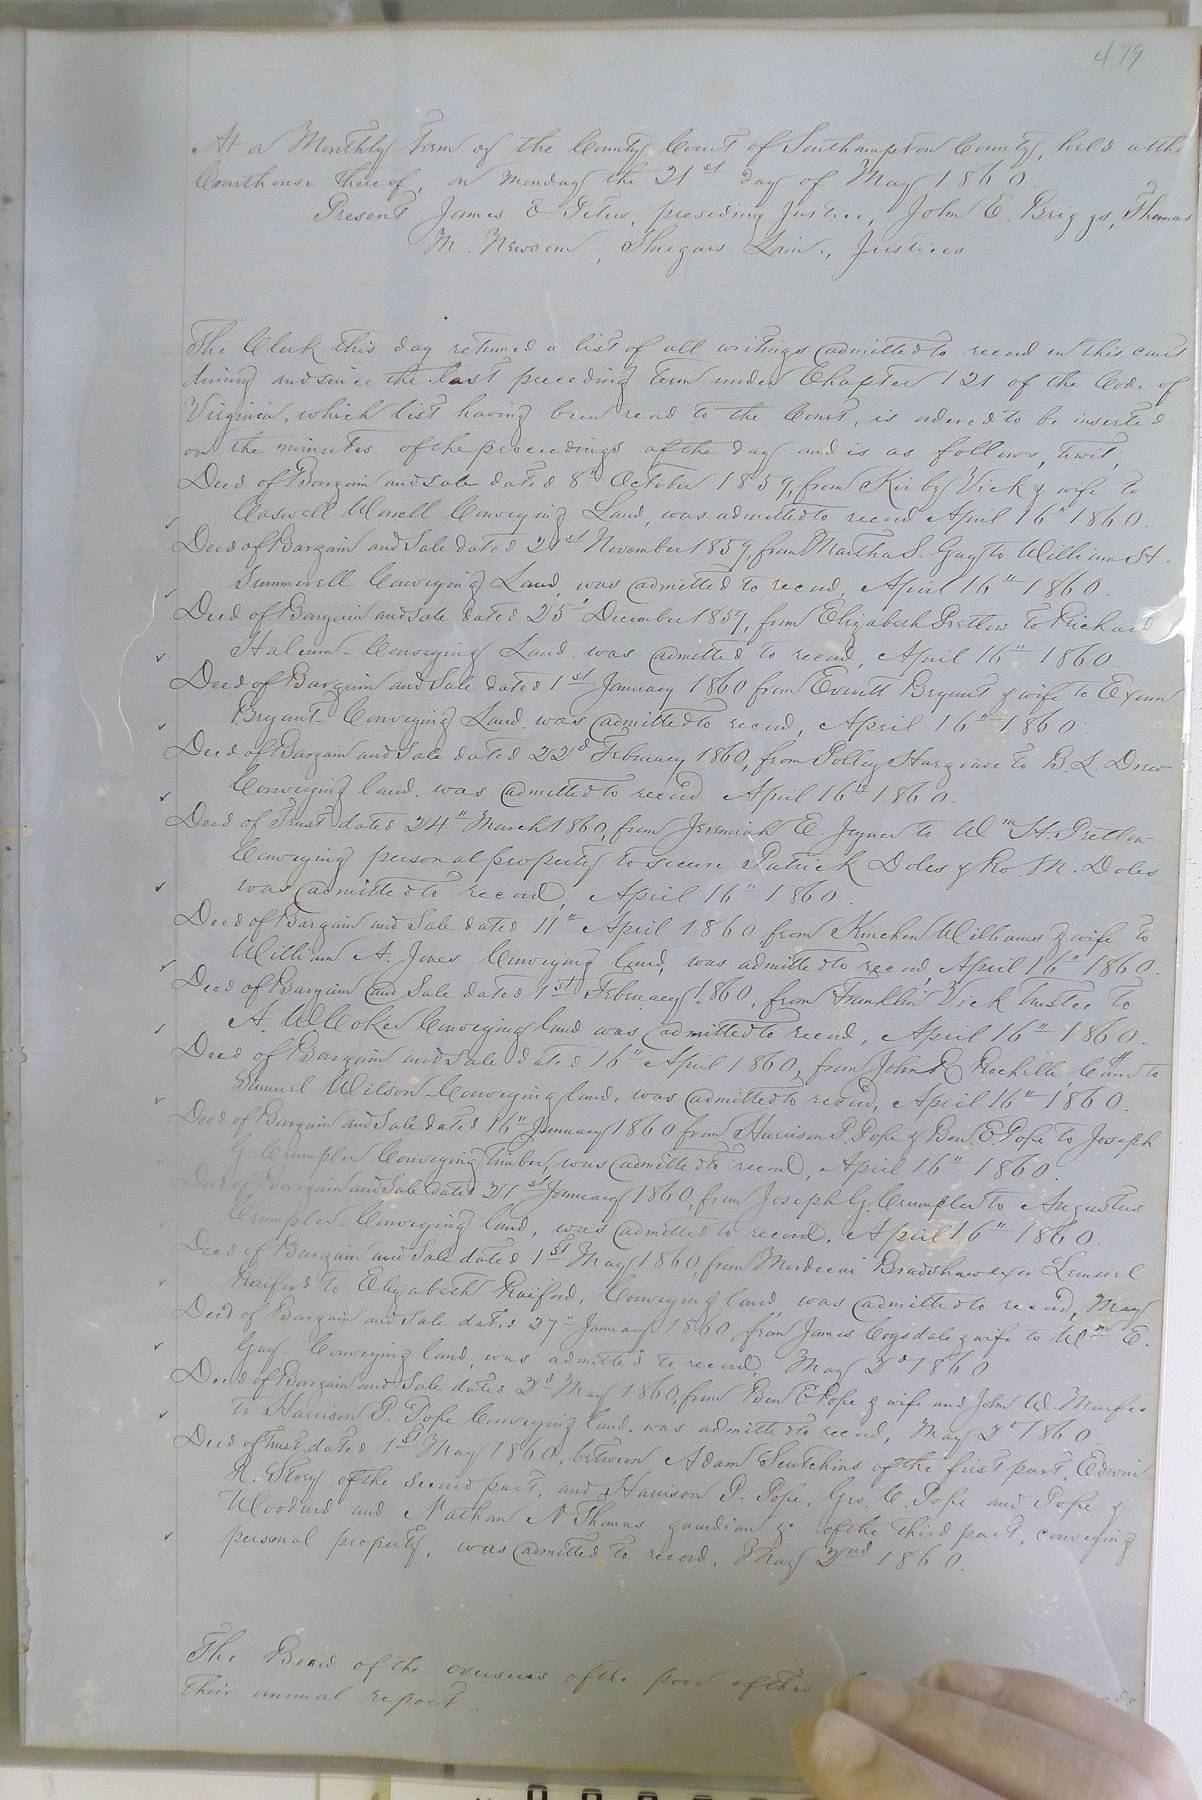 479
At a Monthly Term of the County Court of Southampton County, held at the
Courthouse thereof, on Monday the 21st day of May 1860.
Present James E. presiding Justice, John E. Briggs, Thomas
M. Newsom, Justices
The Clerk this day returned a list of all writings admitted to record in this court
during and since the last preceding term under Chapter 121 of the Code of
Virginia, which list having been read to the Court, is ordered to be inserted
on the minutes of the proceedings of the day and is as follows, towit;
Deed of Bargain and Sale dated 8th October 1859, from Kirby Vick & wife to
Caswell Worrell Conveying Land, was admitted to record April 16th 1860.
Deed of Bargain and Sale dated 21st November 1859, from Martha S. Gay to William H.
Summerell Conveying Land, was admitted to record, April 16th 1860.
Deed of Bargain and Sale dated 25th December 1859, from Elizabeth Pretlow to Richard
Conveying Land. was admitted to record, April 16th 1860.
Deed of Bargain and Sale dated 1st January 1860 from Everitt Bryant & wife to Exum
Bryant Conveying Land. was admitted to record, April 16th 1860.
Deed of Bargain and Sale dated 22d February 1860, from Polley Hargrave to B. L. Drew
Conveying land. was admitted to record April 16th 1860.
Deed of Trust dated 24th March 1860, from Jeremiah E. Joyner to Wm H. Pretlow
Conveying personal property to secure Patrick Doles & Ro. M. Doles
was admitted to record, April 16th 1860.
Deed of Bargain and Sale dated 11th April 1860 from Kinchen Williams & wife to
William A. Jones Conveying land, was admitted to record, April 16th 1860.
Deed of Bargain and Sale dated 1st February 1860, from Franklin Vick trustee to
A. W. Coker Conveying land was admitted to record, April 16th 1860.
Deed of Bargain and Sale dated 16th April 1860, from John R. Rochelle, to
Samuel Wilson Conveying land, was admitted to record, April 16th 1860.
Deed of Bargain and Sale dated 16th January 1860 from Harrison P. Pope & Ben. E. Pope to Joseph
G. Crumpler Conveying timber, was admitted to record, April 16th 1860.
Deed of Bargain and Sale dated 21st January 1860, from Joseph G. Crumpler to Augustus
Crumpler Conveying land, was admitted to record, April 16th 1860.
Deed of Bargain and Sale dated 1st May 1860, from Mordecai Bradshaw exor Lemuel
Raiford to Elizabeth Raiford, Conveying land, was admitted to record, May
Deed of Bargain and Sale dated 27th January 1860, from James Cogsdale & wife to Wm E.
Gay Conveying land, was admitted to record, May 2d 1860
Deed of Bargain and Sale dated 2d May 1860, from Ben E. Pope & wife and John W. Murfee
to Harrison P. Pope Conveying land. was admitted to record, May 2d 1860
Deed of Trust dated 1st May 1860, between Adam Scutchins of the first part, Edwin
R. Story of the second part, and Harrison P. Pope, Geo. C. Pope and Pope &
Woodard and Nathan N Thomas guardian &c. of the third part, conveying
personal property, was admitted to record, May 2nd 1860.
The Board of the overseers of the poor of this
their annual report.